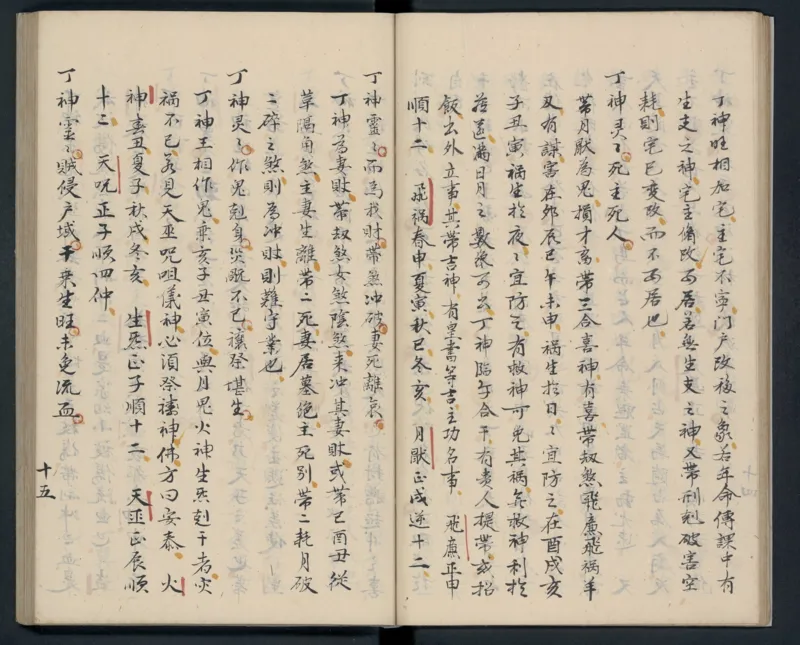 丁神旺相加宅主宅不寧門戶改移之象若年命傳課中有
生支之神宅主脩改而居若無生支之神又帶刑剋破害空
耗則宅已變改而不可居也
丁神灵〻死主死人
帶月厭為鬼損才高帶三合喜神有喜帶刼煞飛廉飛禍羊
刃有謀害在卯辰巳午未申禍生於日〻宜防之在酉戌亥
子丑寅禍生於夜〻宜防之有救神可免其禍無救神利於
遊滿日月之數幾可去丁神臨午合干有貴人提帶或招
飯去外立事其帶吉神有皇書等吉主功名事 飛廉正申
順十二 飛禍春申夏寅秋巳冬亥 月厭正戌逆十二
丁神靈〻而為我財帶煞冲破妻死離哀
丁神為妻財帶刼煞女煞陰煞來冲其妻財或帶巳酉丑從
革隔角煞主妻生離帶二死妻居墓絕主死別帶二耗月破
二碎之煞則為冲財則難守業也
丁神灵〻作鬼剋身災既不已禳祭堪生
丁神王相作鬼乘亥子丑寅位與月鬼火神生炁剋干者灾
禍不已若見天巫咒咀儀神心須祭禱神佛方曰安泰 火
神春丑夏子秋戌冬亥 生炁正子順十二 天巫正辰順
十二 天咒正子順四仲
丁神靈〻賊侵戶域干乗生旺未免流血
十五